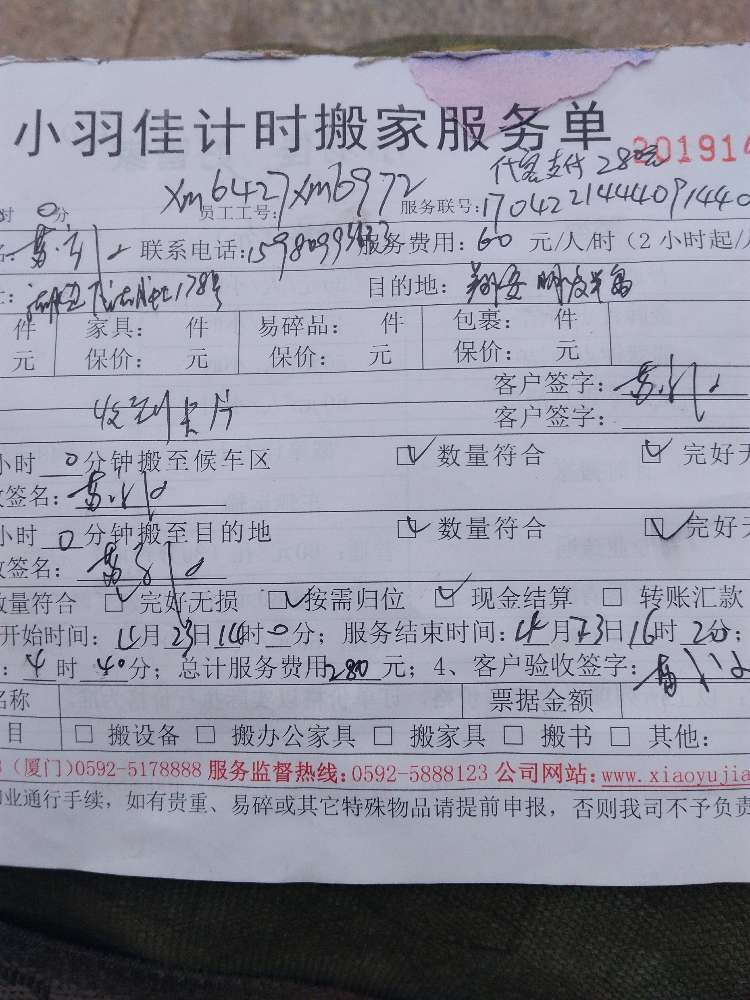 小羽佳计时搬家服务单
201914
代客支付280元
时 0分 员工工号: xm6427 xm6972 服务联号:170422144409 1440
联系电话: 服务费用: 60 元/人/时（2小时起/
178号 目的地: 翔安
件 家具: 件 易碎品: 件 包裹: 件
元 保价: 元 保价: 元 保价: 元
客户签字:
收到卡片 客户签字:
小时 0 分钟搬至候车区 ☑ 数量符合 ☑ 完好无
收签名:
小时 0 分钟搬至目的地 ☑ 数量符合 ☑ 完好无
收签名:
数量符合 ☑ 完好无损 ☑ 按需归位 ☑ 现金结算 □ 转账汇款 □
开始时间: 月23日14时0分; 服务结束时间: 月23日16时2分;
: 4 时 40分; 总计服务费用280元; 4、客户验收签字:
名称 票据金额
目 □ 搬设备 □ 搬办公家具 □ 搬家具 □ 搬书 □ 其他:
（厦门)0592-5178888 服务监督热线:0592-5888123 公司网站:www.xiaoyujia
业通行手续，如有贵重、易碎或其它特殊物品请提前申报，否则我司不予负责